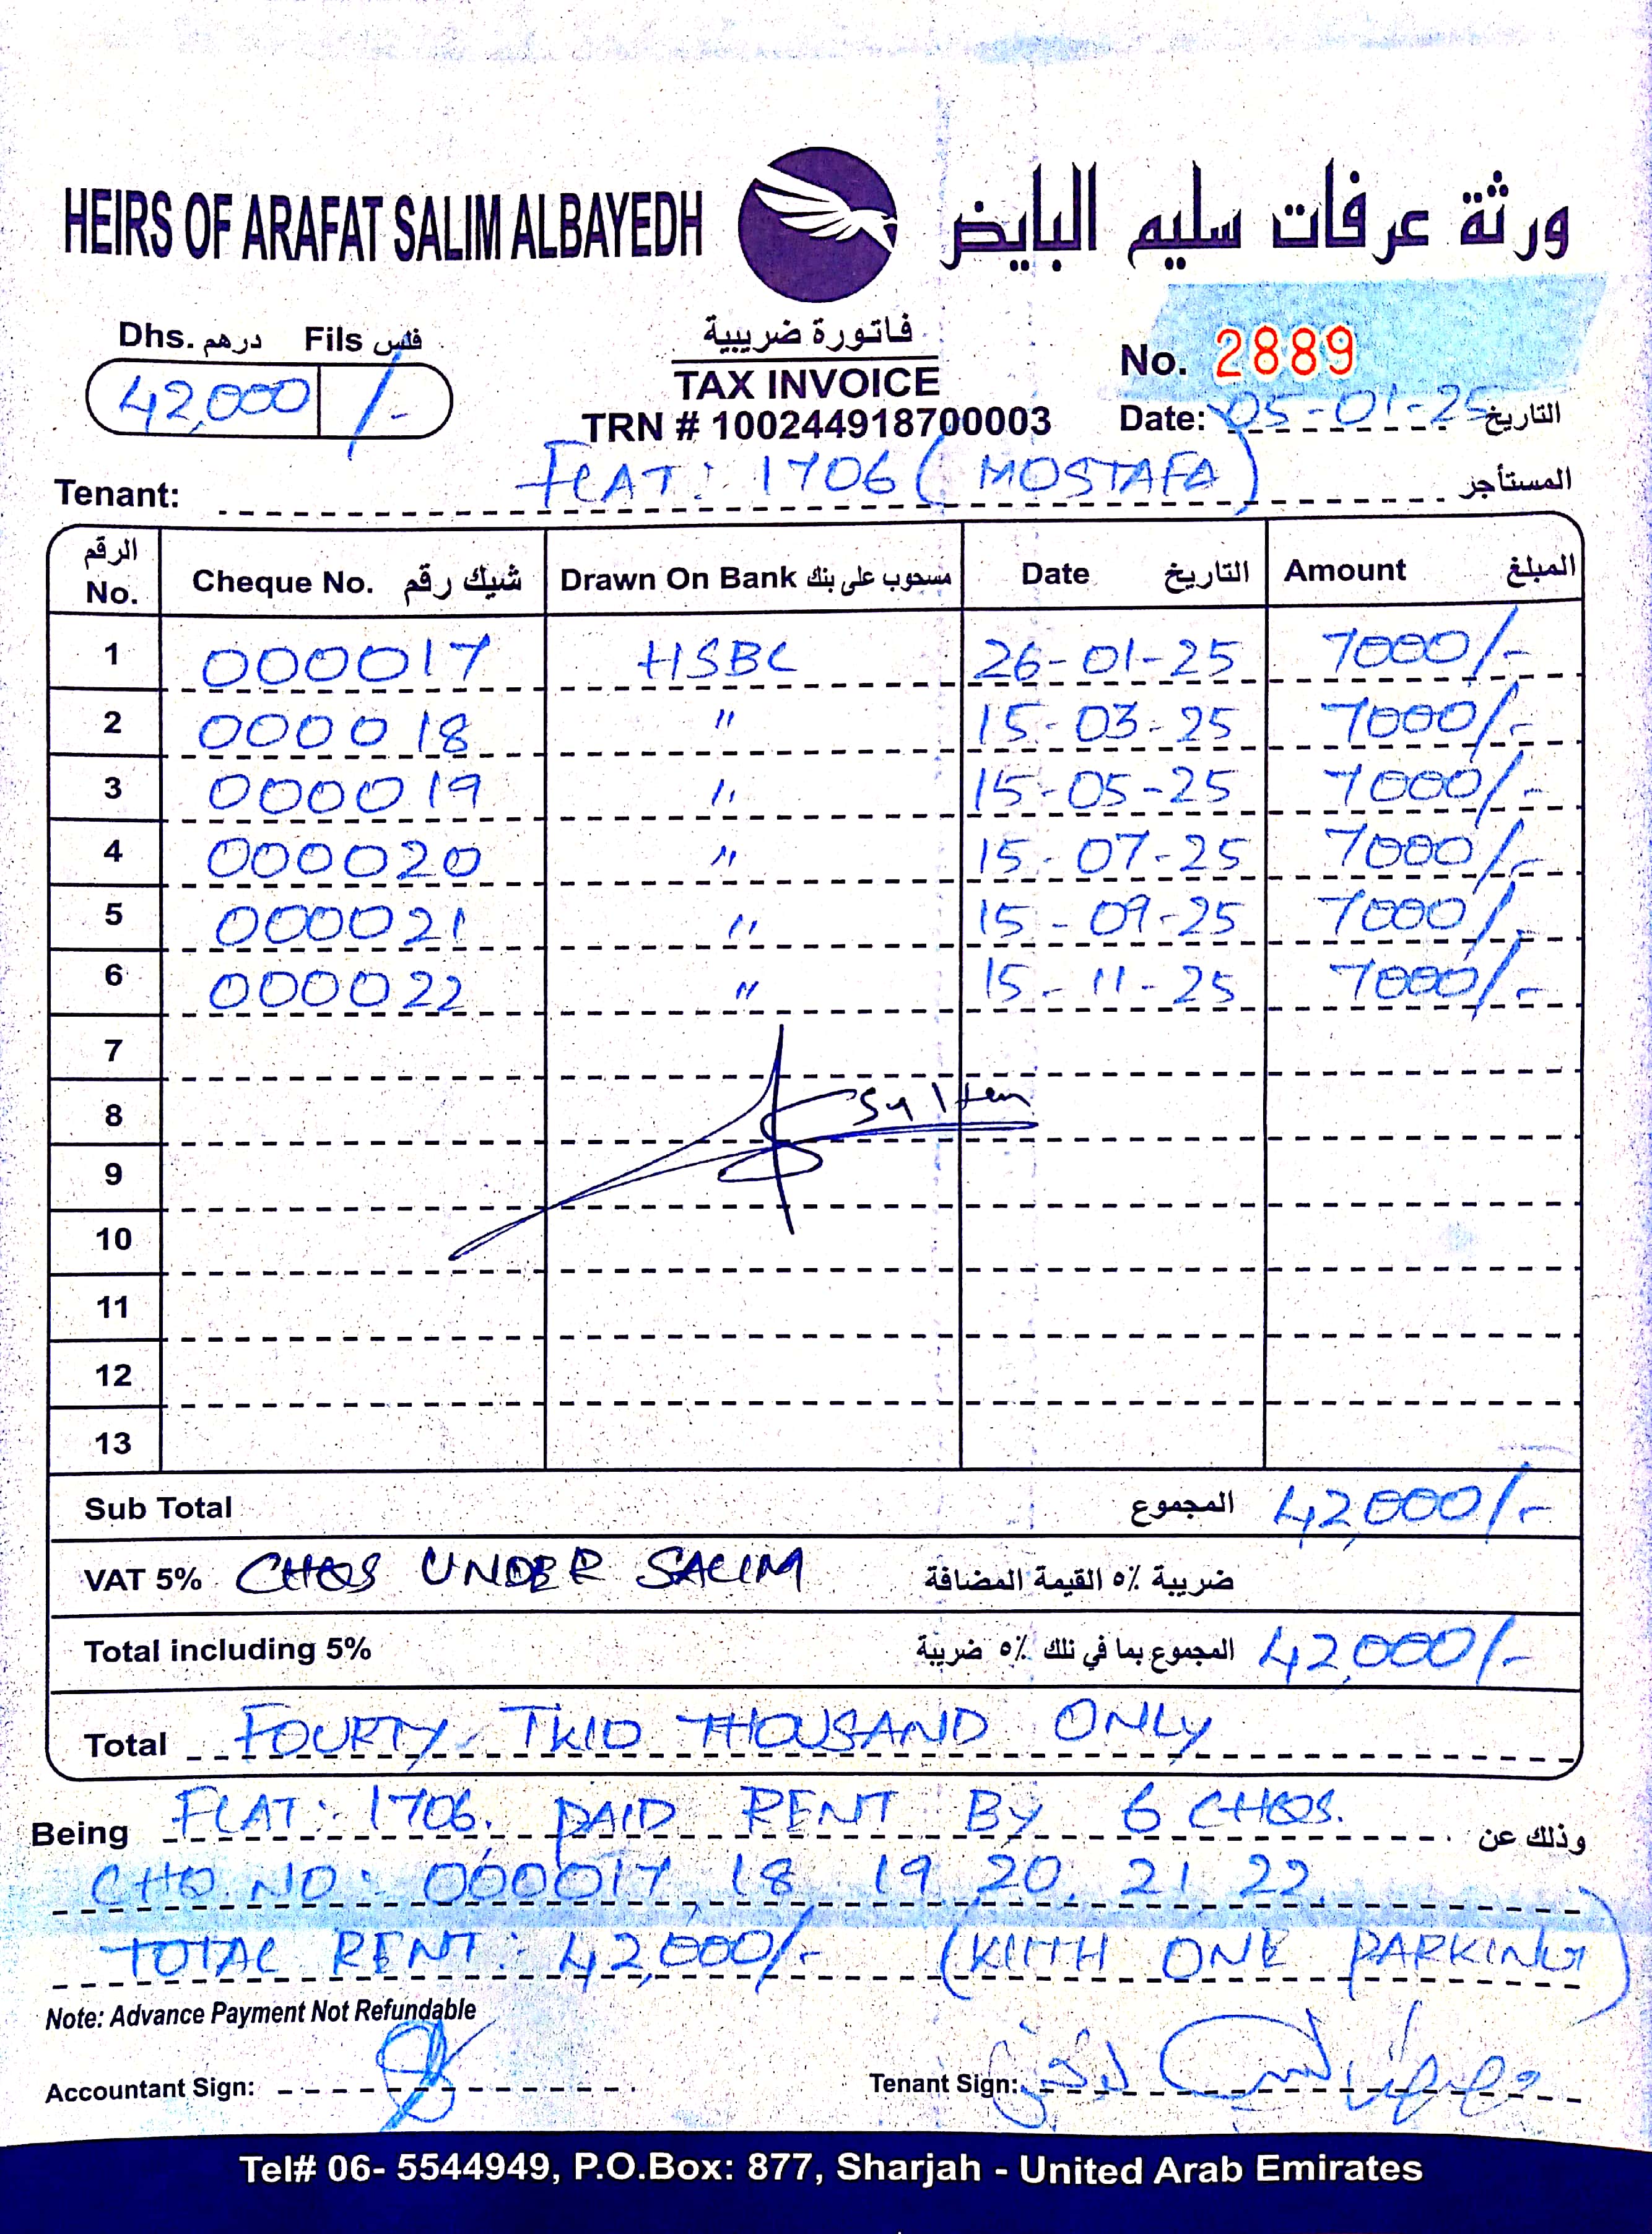 HEIRS OF ARAFAT SALIM ALBAYEDH ورثة عرفات سليم البايض
Dhs. درهم Fils فلس
42,000 /-
فاتورة ضريبية
TAX INVOICE
TRN # 100244918700003
No. 2889
Date: 05-01-25 التاريخ
Tenant: FLAT: 1706 (MOSTAFA) المستأجر
الرقم No. Cheque No. شيك رقم Drawn On Bank مسحوب على بنك Date التاريخ Amount المبلغ
1 000017 HSBC 26-01-25 7000/-
2 000018 " 15-03-25 7000/-
3 000019 " 15-05-25 7000/-
4 000020 " 15-07-25 7000/-
5 000021 " 15-09-25 7000/-
6 000022 " 15-11-25 7000/-
7
8 Sultan
9
10
11
12
13
Sub Total المجموع 42,000/-
VAT 5% CHQS UNDER SALIM ضريبة ٥٪ القيمة المضافة
Total including 5% المجموع بما في ذلك ٥٪ ضريبة 42,000/-
Total FOURTY TWO THOUSAND ONLY
Being FLAT: 1706. PAID RENT BY 6 CHQS. وذلك عن
CHQ. NO: 000017, 18 19, 20, 21, 22.
TOTAL RENT: 42,000/- (WITH ONE PARKING)
Note: Advance Payment Not Refundable
Accountant Sign: Tenant Sign:
Tel# 06- 5544949, P.O.Box: 877, Sharjah - United Arab Emirates